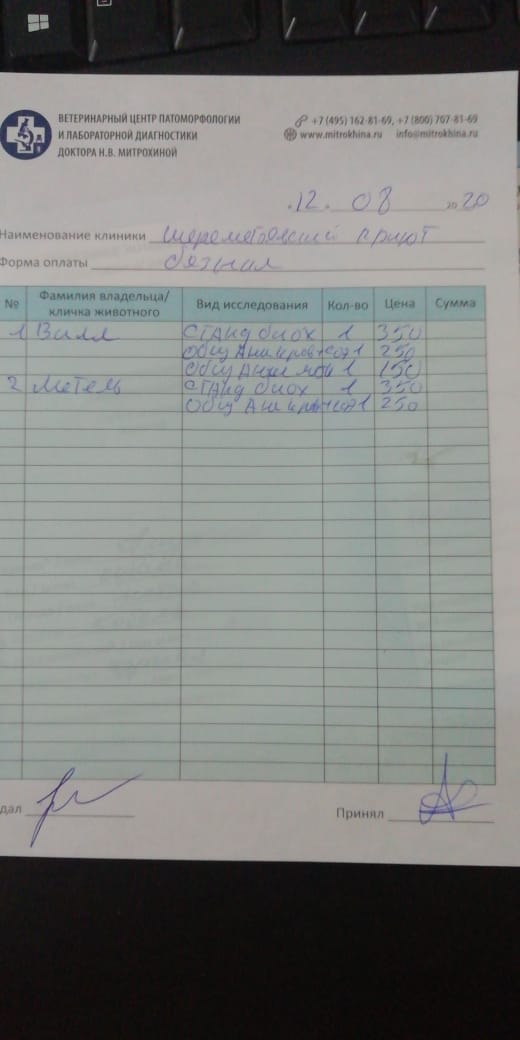 ВЕТЕРИНАРНЫЙ ЦЕНТР ПАТОМОРФОЛОГИИ
И ЛАБОРАТОРНОЙ ДИАГНОСТИКИ
ДОКТОРА Н.В. МИТРОХИНОЙ
+7 (495) 162-81-69, +7 (800) 707-81-69
www.mitrokhina.ru info@mitrokhina.ru
12. 08 2020
Наименование клиники Шереметьевский приют
Форма оплаты безнал
№ Фамилия владельца/ кличка животного Вид исследования Кол-во Цена Сумма
1 Вилл СТАНД биох 1 350
Общ Ан кров+соэ 1 250
Общ Ан мочи 1 150
2 Метель СТАНД биох 1 350
Общ Ан кров+соэ 1 250
дал Принял